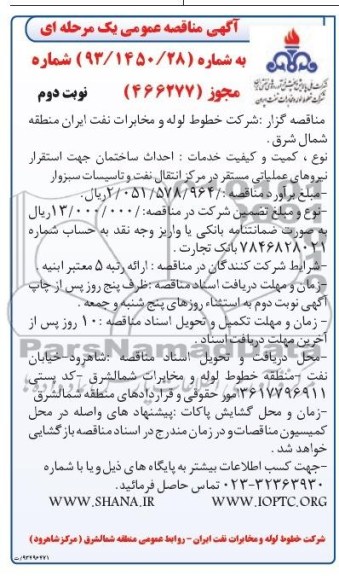 آگهی مناقصه عمومی یک مرحله ای
به شماره (۹۳/۱۴۵۰/۲۸) شماره
مجوز (۴۶۶۲۷۷) نوبت دوم
شرکت خطوط لوله و مخابرات نفت ایران
مناقصه گزار :شرکت خطوط لوله و مخابرات نفت ایران منطقه
شمال شرق .
نوع ، کمیت و کیفیت خدمات : احداث ساختمان جهت استقرار
نیروهای عملیاتی مستقر در مرکز انتقال نفت و تاسیسات سبزوار
-مبلغ برآورد مناقصه :/۲/۰۵۱/۵۷۸/۹۶۴ریال.
-نوع و مبلغ تضمین شرکت در مناقصه:/۱۳/۰۰۰/۰۰۰ریال
به صورت ضمانتنامه بانکی یا واریز وجه نقد به حساب شماره
۷۸۴۶۸۲۸۰۲۱ بانک تجارت .
-شرایط شرکت کنندگان در مناقصه : ارائه رتبه ۵ معتبر ابنیه
-زمان و مهلت دریافت اسناد مناقصه :ظرف پنج روز پس از چاپ
آگهی نوبت دوم به استثناء روزهای پنج شنبه و جمعه .
- زمان و مهلت تکمیل و تحویل اسناد مناقصه :۱۰ روز پس از
آخرین مهلت دریافت اسناد .
-محل دریافت و تحویل اسناد مناقصه :شاهرود-خیابان
نفت -منطقه خطوط لوله و مخابرات شمالشرق -کد پستی
۳۶۱۷۷۹۶۹۱۱امور حقوقی و قراردادهای منطقه شمالشرق
-زمان و محل گشایش پاکات :پیشنهاد های واصله در محل
کمیسیون مناقصات و در زمان مندرج در اسناد مناقصه بازگشایی
خواهد شد .
-جهت کسب اطلاعات بیشتر به پایگاه های ذیل و یا با شماره
۰۲۳-۳۲۳۶۳۹۳۰ تماس حاصل فرمائید.
WWW.SHANA.IR WWW.IOPTC.ORG
شرکت خطوط لوله و مخابرات نفت ایران - روابط عمومی منطقه شمالشرق (مرکز شاهرود)